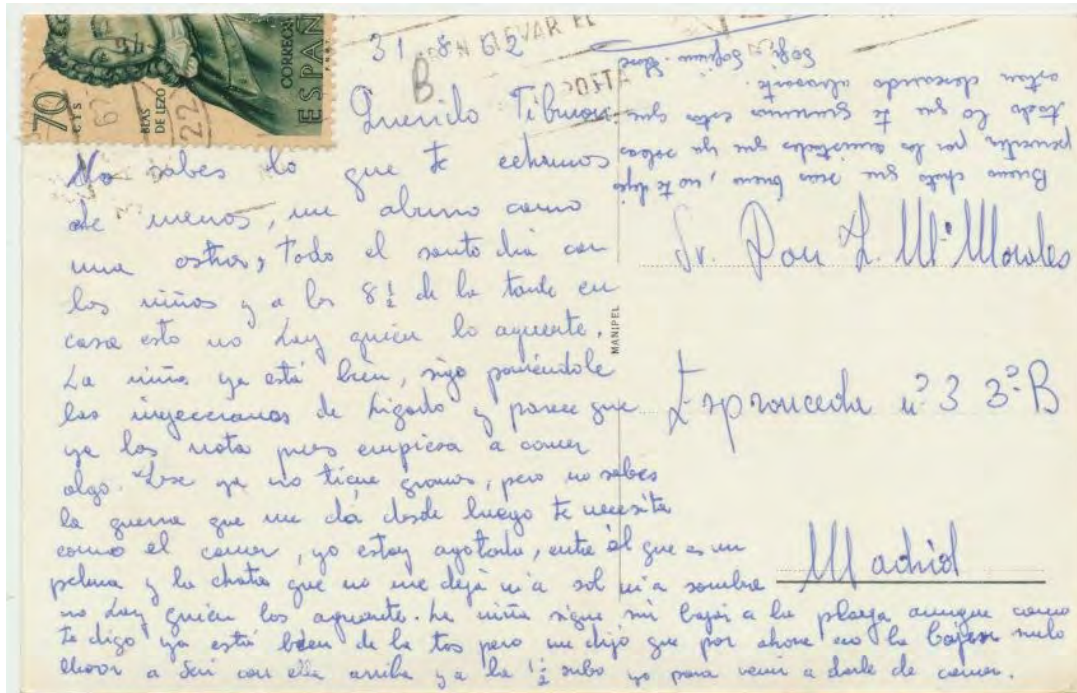 70
CTS
BLAS
DE LEZO
CORREOS
ESPAÑA
31 8 62
Querido Tiburon
No sabes lo que te echamos
de menos, me aburro como
una ostra, todo el santo dia con
los niños y a las 8 ½ de la tarde en
casa esto no hay quien lo aguante.
La niña ya está bien, sigo poniéndole
las inyecciones de higado y parece que
ya las nota pues empieza a comer
algo. Jose ya no tiene granos, pero no sabes
la guerra que me dá desde luego te necesita
como el comer, yo estoy agotada, entre él que es un
pelma y la chata que no me deja ni a sol ni a sombra
no hay quien los aguante. La niña sigue sin bajar a la playa aunque como
te digo ya está bien de la tos pero me dijo que por ahora no la bajase suelo
a con ella arriba y a la 1 ½ subo yo para venir a darle de comer.
Bueno chato que seas bueno, no te dejes
pervertir por las amistades que ya sabes
todo lo que te queremos estas que
estan deseando abrazarte.
Sr. Don L. Mª Morales
Espronceda nº 3 3º B
Madrid
MANIPEL